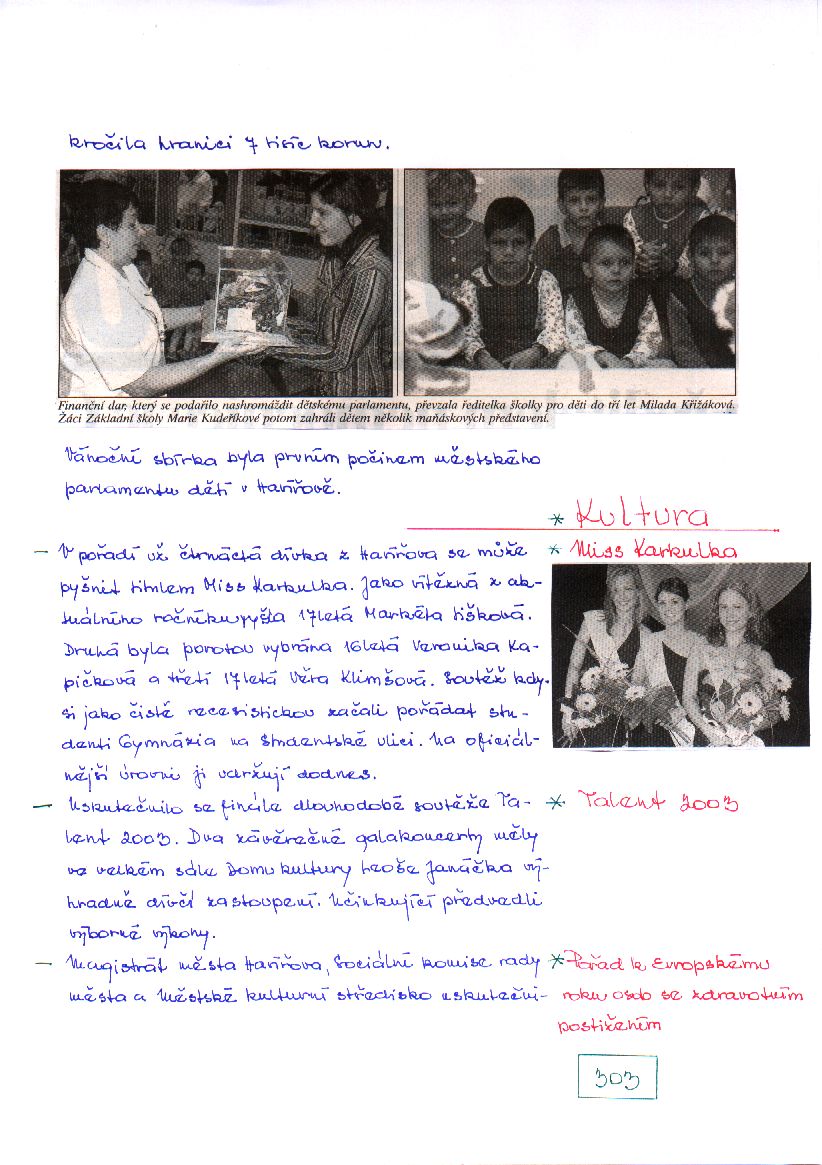 kročila hranici 7 tisíc korun.
Finanční dar, který se podařilo nashromáždit dětskému parlamentu, převzala ředitelka školky pro děti do tří let Milada Křižáková.
Žáci Základní školy Marie Kudeříkové potom zahráli dětem několik maňáskových představení.
Vánoční sbírka byla prvním počinem městského
parlamentu dětí v Havířově.
* Kultura
– V pořadí už čtrnáctá dívka z Havířova se může
* Miss Karkulka
pyšnit titulem Miss Karkulka. Jako vítězná z ak-
tuálního ročníku vyšla 17letá Markéta Lišková.
Druhá byla porotou vybrána 16letá Veronika Ka-
pičková a třetí 17letá Věra Klimšová. Soutěž kdy-
si jako čistě recesistickou začali pořádat stu-
denti Gymnázia na Studentské ulici. Na oficiál-
nější úrovni ji udržují dodnes.
– Uskutečnilo se finále dlouhodobé soutěže Ta-
* Talent 2003
lent 2003. Dva závěrečné galakoncerty měly
ve velkém sále Domu kultury Leoše Janáčka vý-
hradně dívčí zastoupení. Účinkující předvedli
výborné výkony.
– Magistrát města Havířova, Sociální komise rady
* Pořad k Evropskému
města a Městské kulturní středisko uskuteční-
roku osob se zdravotním
postižením
303